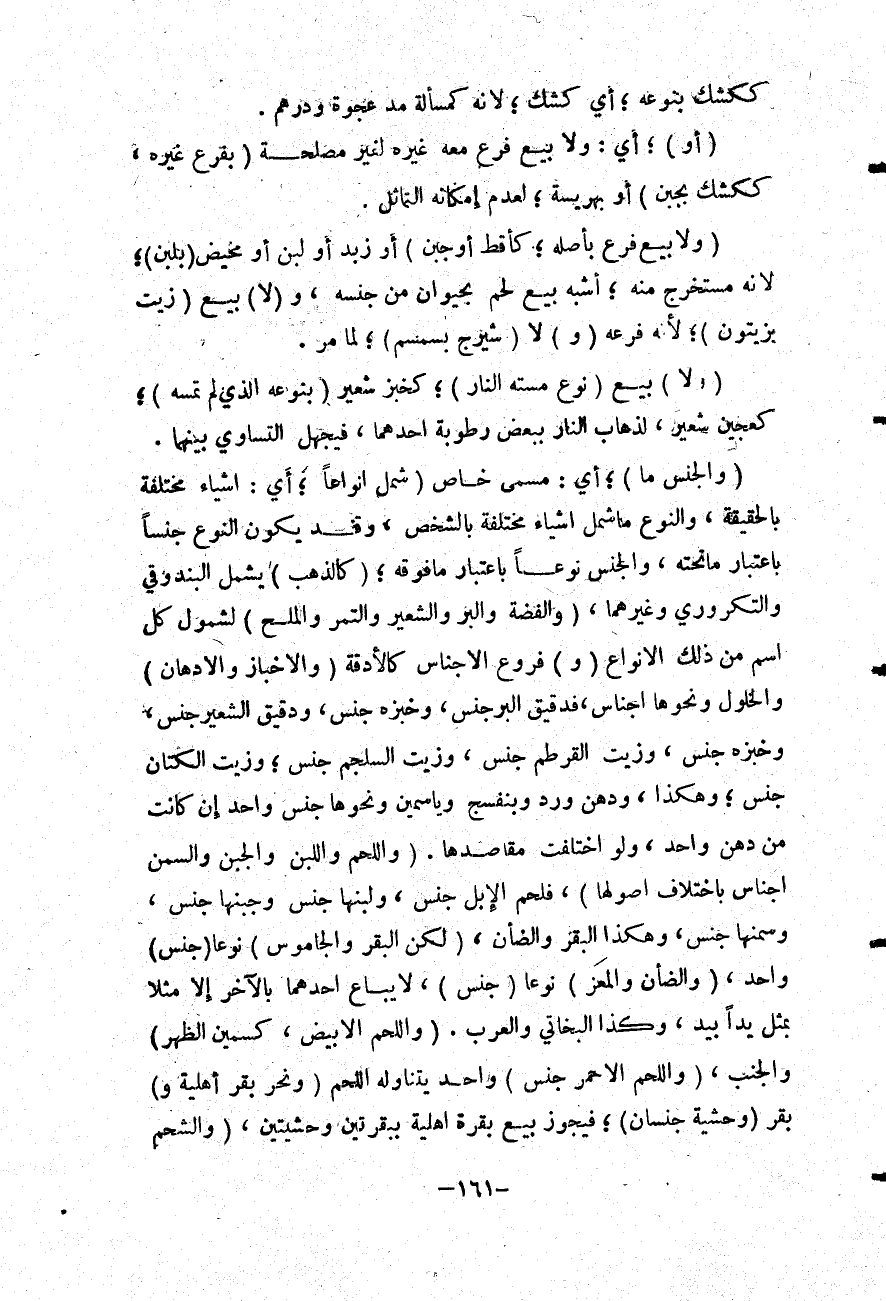 ككشك بنوعه ؛ أي كشك ؛ لانه كمسألة مد عجوة ودرهم .
( أو ) ؛ أي : ولا بيـع فرع معه غيره لغير مصلحـــة ( بفرع غيره ،
ككشك بجبن ) أو بهريسة ؛ لعدم إمكانه التماثل .
( ولا بيـع فرع بأصله ؛ كأقط أوجبن ) أو زبد أو لبن أو مخيض(بلبن)؛
لانه مستخرج منه ؛ أشبه بيـع لحم بحيوان من جنسه ، و (لا) بيـع ( زيت
بزيتون )؛ لأنه فرعه ( و ) لا ( شيرج بسمسم) ؛ لما مر .
( ولا ) بيـع ( نوع مسته النار ) ؛ كخبز شعير ( بنوعه الذي لم تمسه ) ؛
كعجين شعير ، لذهاب النار ببعض رطوبة احدهما ، فيجهل التساوي بينهما .
( والجنس ما ) ؛ أي : مسمى خـاص ( شمل انواعاً ؛ أي : اشياء مختلفة
بالحقيقة ، والنوع ماشمل اشياء مختلفة بالشخص ، وقـد يكون النوع جنساً
باعتبار ماتحته ، والجنس نوعـــاً باعتبار مافوقه ؛ ( كالذهب ) يشمل البندوقي
والتكروري وغيرهما ، ( والفضة والبر والشعير والتمر والملـح ) لشمول كل
اسم من ذلك الانواع ( و ) فروع الاجناس كالأدقة ( والاخباز والادهان )
والخلول ونحوها اجناس ،فدقيق البرجنس ، وخبزه جنس ، ودقيق الشعيرجنس ،
وخبزه جنس ، وزيت القرطم جنس ، وزيت السلجم جنس ؛ وزيت الكتان
جنس ؛ وهكذا ، ودهن ورد وبنفسج وياسمين ونحوها جنس واحد إن كانت
من دهن واحد ، ولو اختلفت مقاصـدها . ( واللحم واللبن والجبن والسمن
اجناس باختلاف اصولها ) ، فلحم الإبل جنس ، ولبنها جنس وجبنها جنس ،
وسمنها جنس، وهكذا البقر والضأن ، ( لكن البقر والجاموس ) نوعا(جنس)
واحد ، ( والضأن والمعز ) نوعا ( جنس ) ، لايبـاع احدهما بالآخر إلا مثلا
بمثل يداً بيد ، وكذا البخاتي والعرب . ( واللحم الابيض ، كسمين الظهر)
والجنب ، ( واللحم الاحمر جنس ) واحـد يتناوله اللحم ( ونحر بقر أهلية و)
بقر (وحشية جنسان) ؛ فيجوز بيـع بقرة اهلية ببقرتين وحشيتين ، ( والشحم
–١٦١–